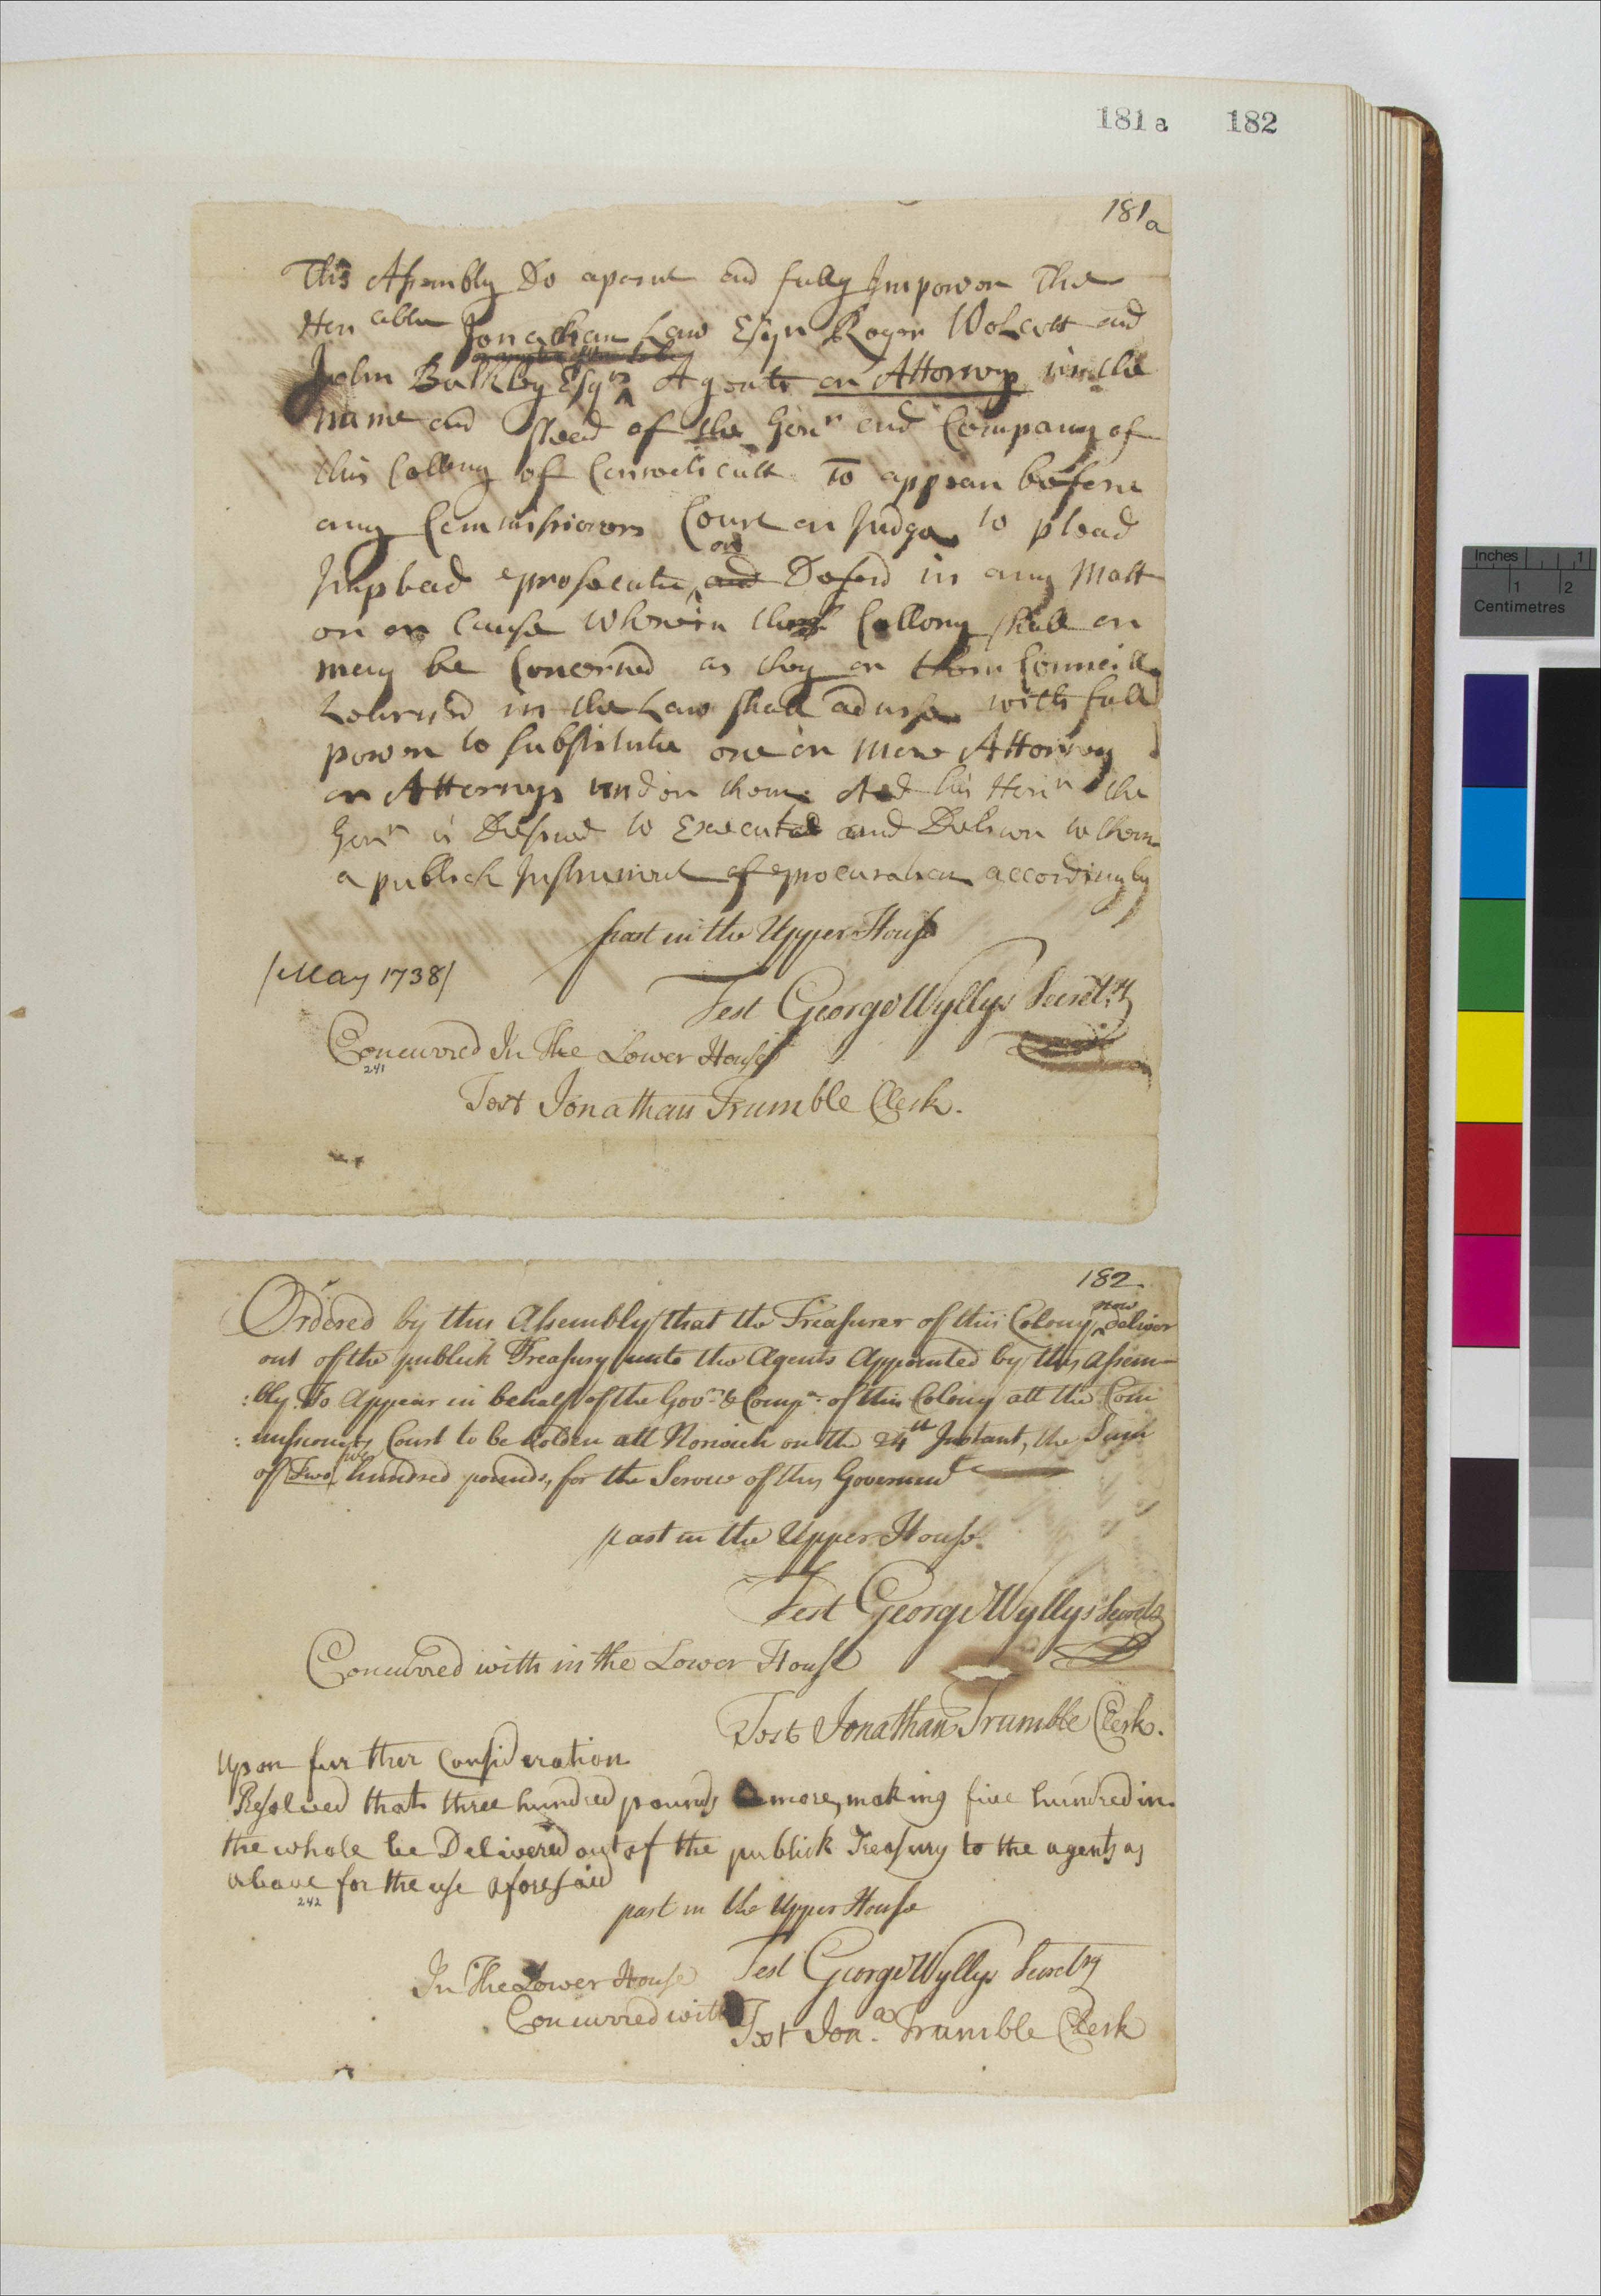 181a 182
181a
This Assembly Do apoint and fully Impower The
Honable Jonathan Law Esqr Roger Wolcott and
John Bulkley Esqrs Agents or Attorneys in the
name and stead of the Govr and Company of
this Collony of Connecticutt To appear before
any Commissioners Court or Judge to plead
or
Implead prosecute and Defend in any Matt
or or Cause Wherein this Collony shall or
may be Concerned as they or their Councill
Lehrned in the Law shall advise with full
power to substitute one or more Attorney
or Attorneys under them And his Honr the
Govr is Desired to Execute and Deliver to them
a publick Instrument of procuration accordingly
past in the Upper House
[May 1738]
Test George Wyllys Secretry
Concurred In The Lower House
241
Test Jonathan Trumble Clerk.
182.
Ordered by this Assembly that the Treasurer of this Colony now deliver
out of the publick Treasury unto the Agents Appointed by this Assem-
:bly To Appear in behalf of the Govr & Compa of this Colony att the Com
:missioners Court to be holden att Norwich on the 24th Instant, the Sum
of Two hundred pounds, for the Service of this Governmt
past in the Upper House.
Test George Wyllys Secretry
Concurred with in the Lower House
Test Jonathan Trumble Clerk.
Upon further Consideration
Resolved that three hundred pounds more, making five hundred in
the whole be Delivered out of the publick Treasury to the agents as
above for the use aforesaid
242
past in the Upper House
Test George Wyllys Secretry
In The Lower House
Concurred with
Test Jona. Trumble Clerk
Inches 1
1 2
Centimetres